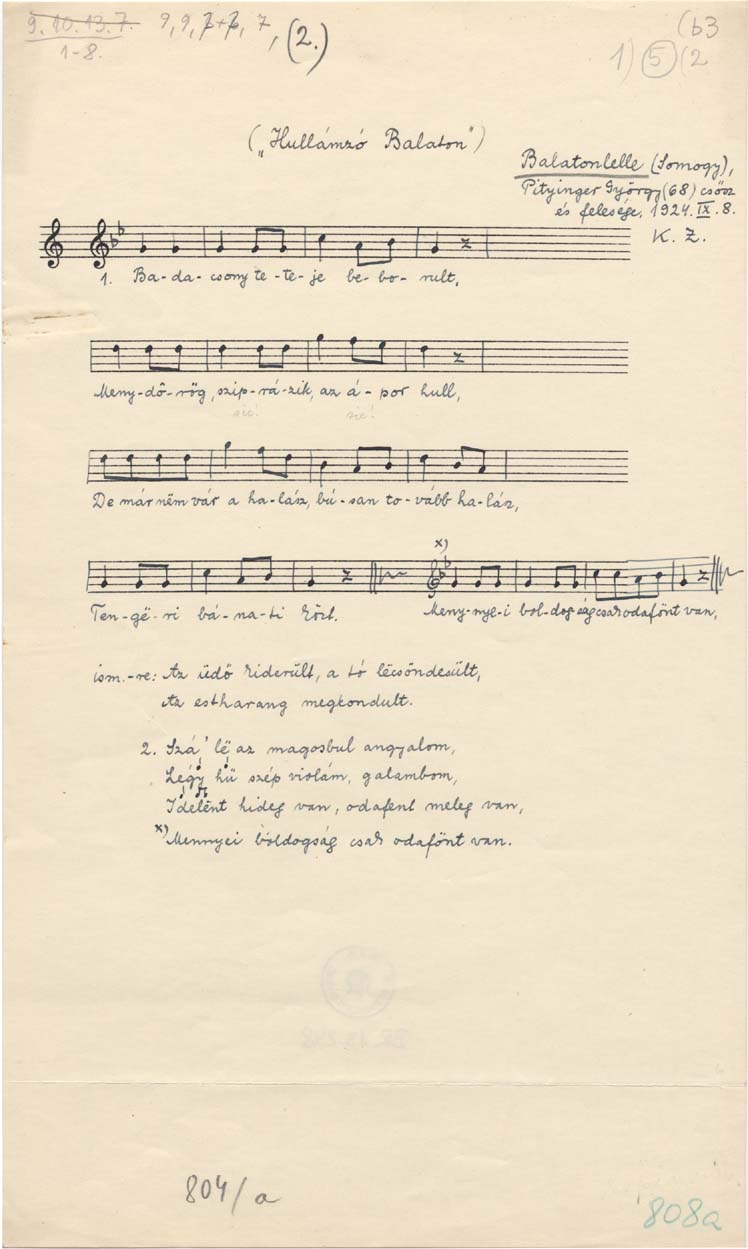 9. 10. 13. 7. 9, 9, 7+7, 7, (2.)
1-8.
(b3
1) 5 (2
("Hullámzó Balaton")
Balatonlelle (Somogy),
Pityinger György (68) csősz
és felesége, 1924. IX. 8.
K. Z.
1. Ba-da-csony te-te-je be-bo-rult,
Meny-dő-rög, szip-rá-zik, az á-por hull,
sic! sic!
De már nëm vár a ha-lász, bú-san to-vább ha-lász,
x)
Ten-gë-ri bá-na-ti közt. Meny-nye-i bol-dog-ság csak odafönt van,
ism.-re: Az üdő kiderűlt, a tó lëcsöndesűlt,
Az estharang megkondult.
2. Szá' lë az magosbul angyalom,
Légy hű szép violám, galambom,
Idelënt hideg van, odafent meleg van,
x) Mennyei bóldogság csak odafönt van.
804/a
808a